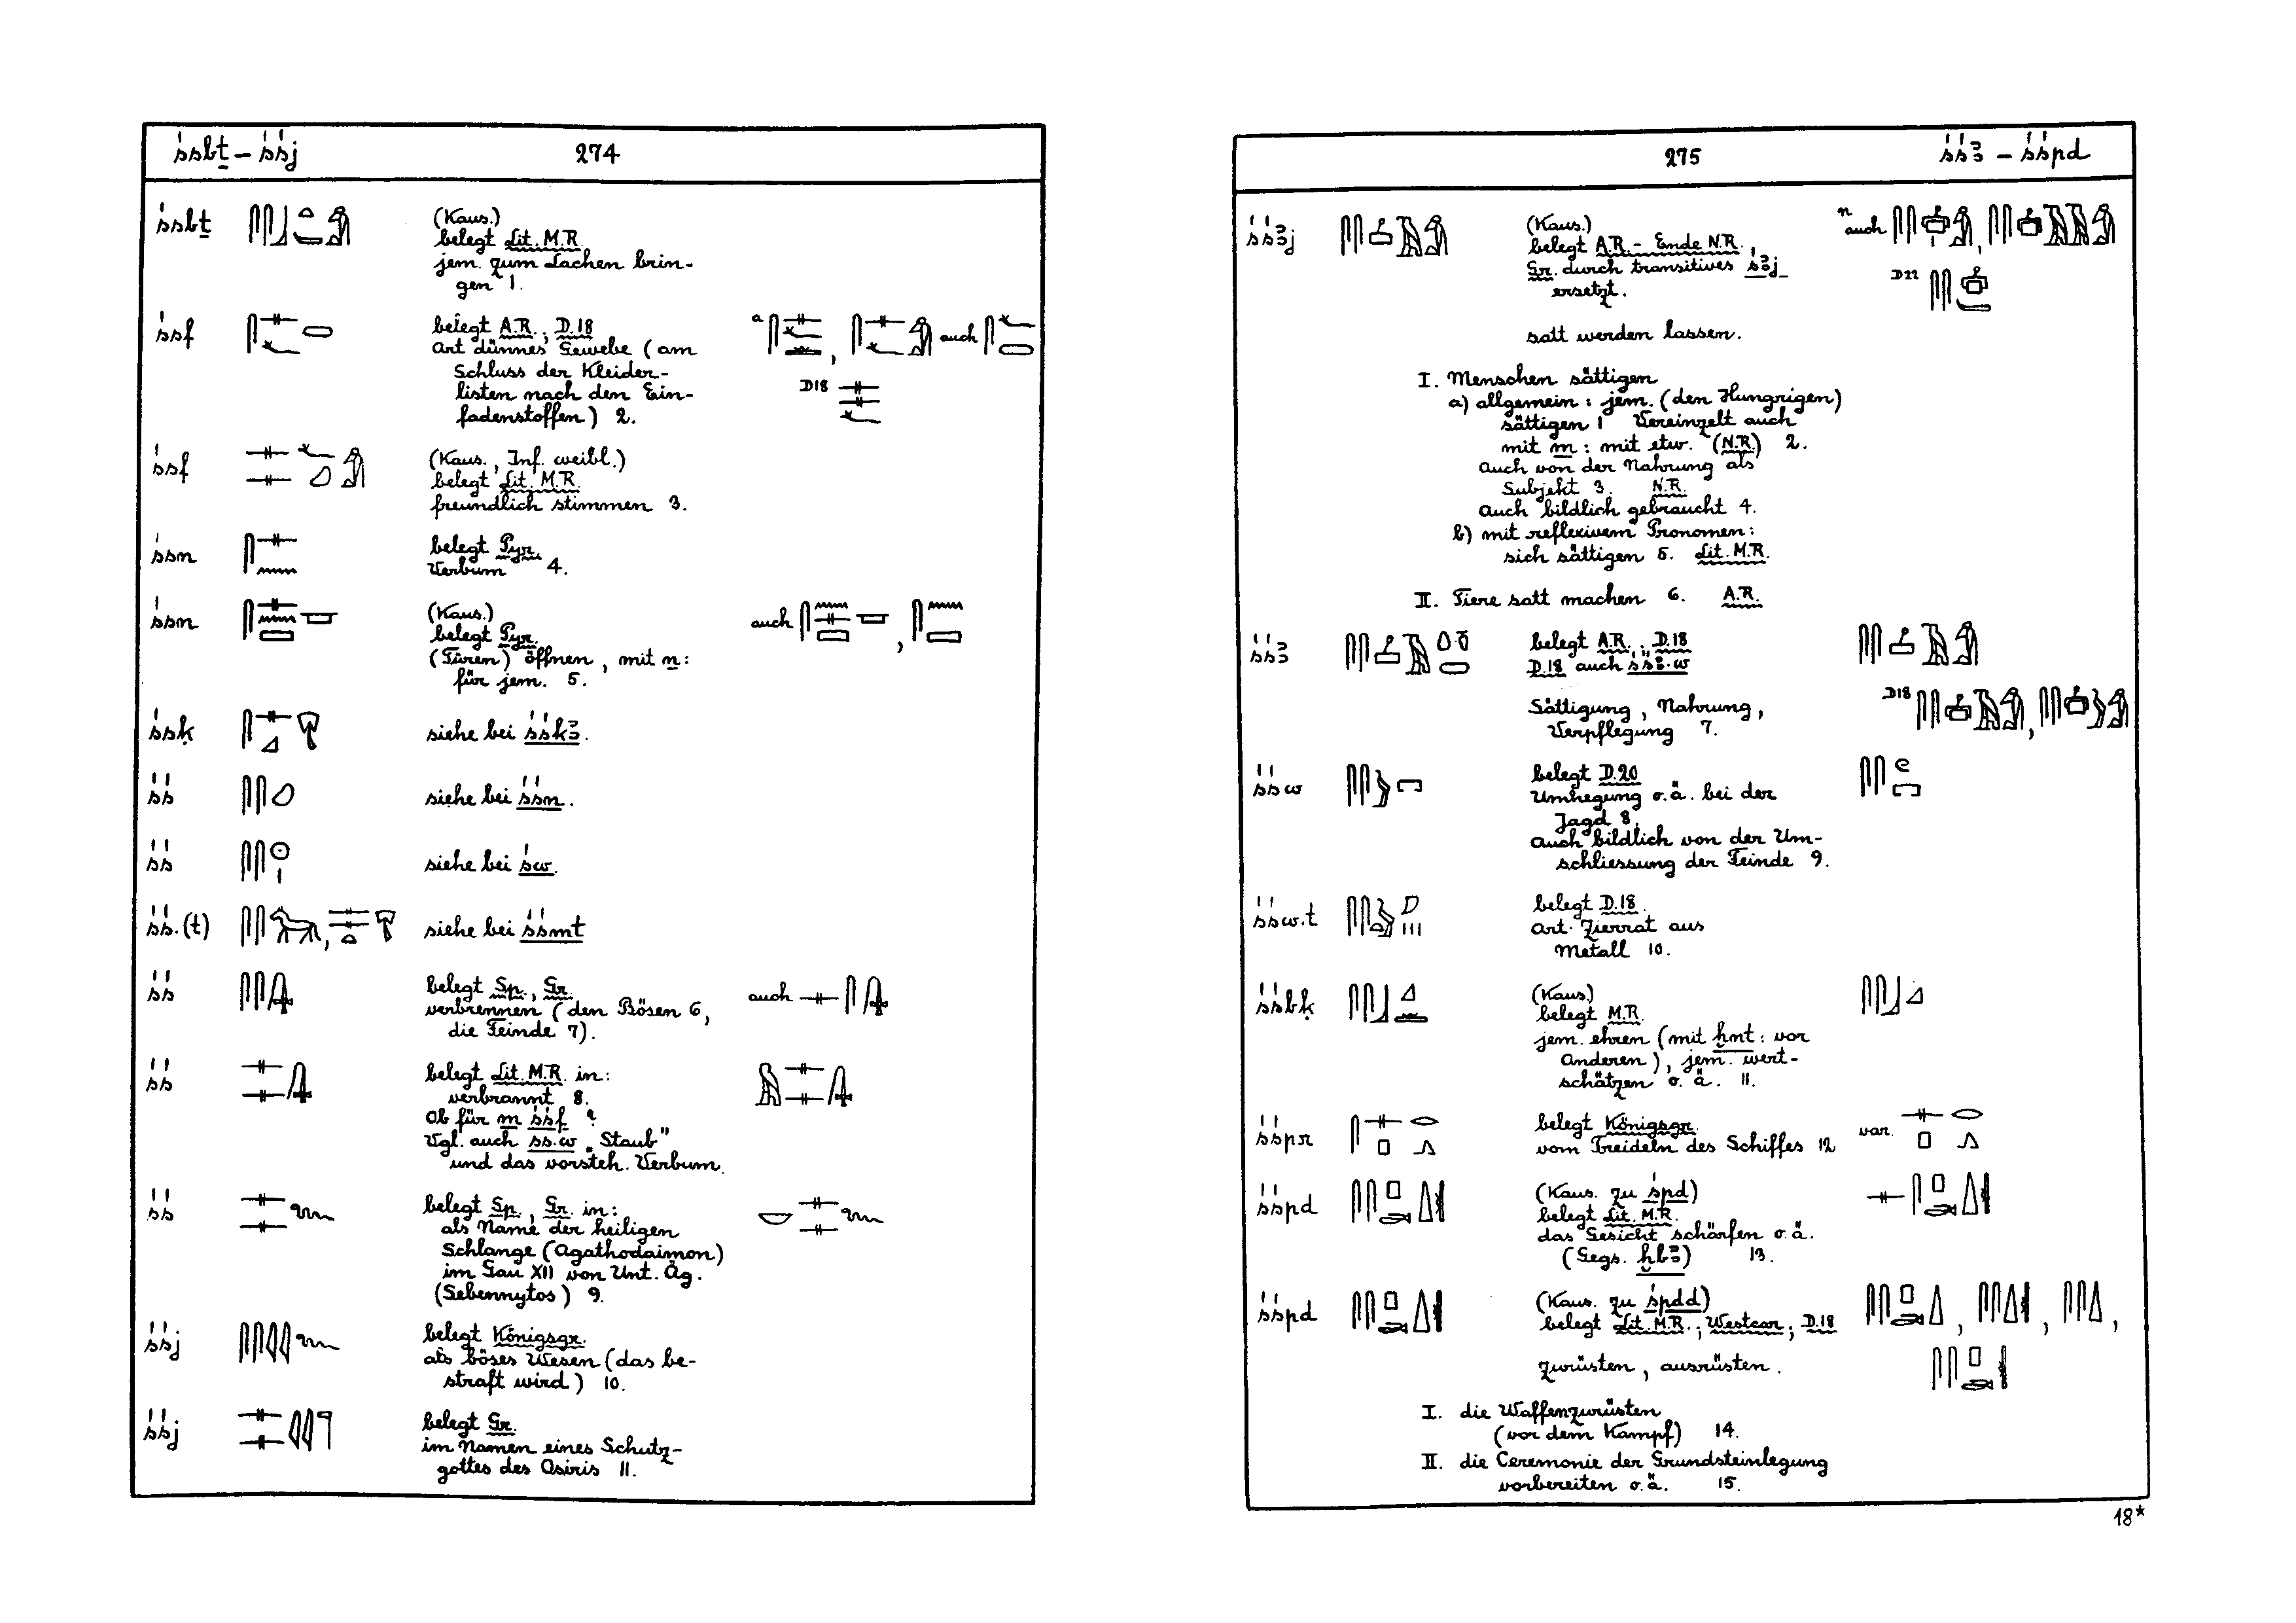 śsbṯ – śśj 274
śsbṯ (Kaus.)
belegt Lit. M.R.
jem. zum Lachen brin-
gen 1.
śsf belegt A.R.; D.18
Art dünnes Gewebe (am
Schluss der Kleider-
listen nach den Ein-
fadenstoffen) 2.
a auch
D18
śsf (Kaus., Inf. weibl.)
belegt Lit. M.R.
freundlich stimmen 3.
śsn belegt Pyr.
Verbum 4.
śsn (Kaus.)
belegt Pyr.
(Türen) öffnen, mit n:
für jem. 5.
auch
śsḳ siehe bei śśkꜣ.
śś siehe bei śśn.
śś siehe bei św.
śś.(t) siehe bei śśmt
śś belegt Sp., Gr.
verbrennen (den Bösen 6,
die Feinde 7).
auch
śś belegt Lit. M.R. in:
verbrannt 8.
Ob für m śśf ?
Vgl. auch ss.w „Staub"
und das vorsteh. Verbum.
śś belegt Sp., Gr. in:
als Name der heiligen
Schlange (Agathodaimon)
im Gau XII von Unt. Äg.
(Sebennytos) 9.
śśj belegt Königsgr.
als böses Wesen (das be-
straft wird) 10.
śśj belegt Gr.
im Namen eines Schutz-
gottes des Osiris 11.
275 śśꜣ – śśpd
śśꜣj (Kaus.)
belegt A.R. – Ende N.R.,
Gr. durch transitives śꜣj
ersetzt.
n auch
D22
satt werden lassen.
I. Menschen sättigen
a) allgemein: jem. (den Hungrigen)
sättigen 1 Vereinzelt auch
mit m: mit etw. (N.R.) 2.
Auch von der Nahrung als
Subjekt 3. N.R.
Auch bildlich gebraucht 4.
b) mit reflexivem Pronomen:
sich sättigen 5. Lit. M.R.
II. Tiere satt machen 6. A.R.
śśꜣ belegt A.R.; D.18
D.18 auch śśꜣ.w
Sättigung, Nahrung,
Verpflegung 7.
D18
śśw belegt D.20
Umhegung o.ä. bei der
Jagd 8.
Auch bildlich von der Um-
schliessung der Feinde 9.
śśw.t belegt D.18.
Art Zierrat aus
Metall 10.
śśbḳ (Kaus.)
belegt M.R.
jem. ehren (mit ḫnt: vor
Anderen), jem. wert-
schätzen o. ä. 11.
śśpr belegt Königsgr.
vom Treideln des Schiffes 12
var.
śśpd (Kaus. zu śpd)
belegt Lit. M.R.
das Gesicht schärfen o.ä.
(Gegs. ḫbꜣ) 13.
śśpd (Kaus. zu śpdd)
belegt Lit. M.R.; Westcar; D.18
zurüsten, ausrüsten.
I. die Waffen zurüsten
(vor dem Kampf) 14.
II. die Ceremonie der Grundsteinlegung
vorbereiten o.ä. 15.
18*